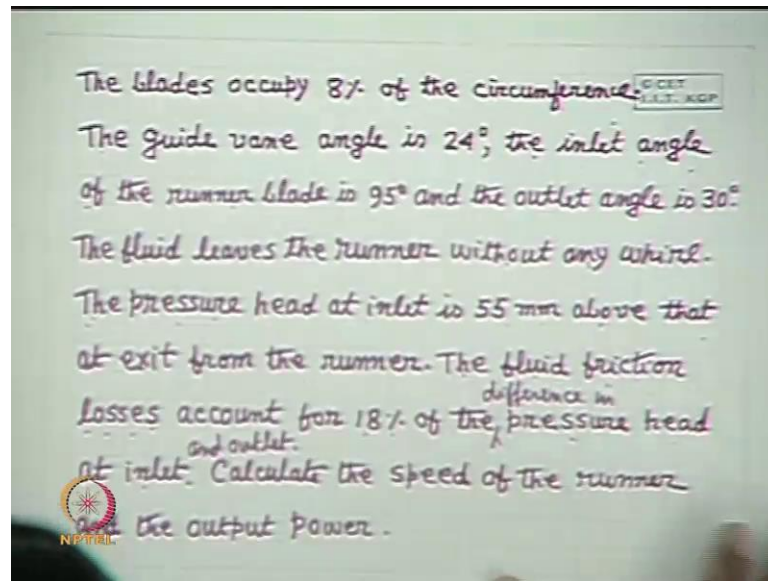 The blades occupy 8% of the circumference.
The guide vane angle is 24°, the inlet angle
of the runner blade is 95° and the outlet angle is 30°.
The fluid leaves the runner without any whirl.
The pressure head at inlet is 55 mm above that
at exit from the runner. The fluid friction
difference in
losses account for 18% of the pressure head
and outlet.
at inlet Calculate the speed of the runner
and the output power.
C CET
I.I.T. KGP
NPTEL